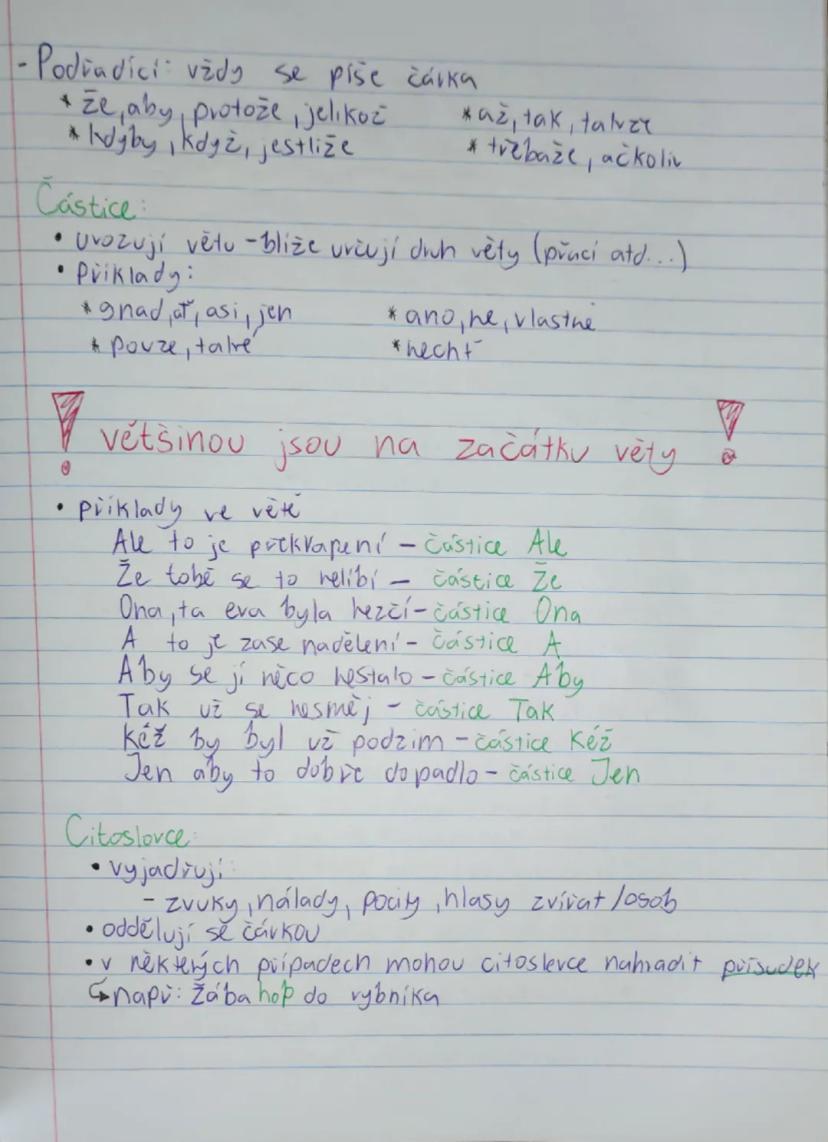 - Podřadící: vždy se píše čárka
* že, aby, protože, jelikož * až, tak, takže
* kdyby, když, jestliže * třebaže, ačkoliv
Částice:
• uvozují větu - blíže určují druh věty (přací atd...)
• příklady:
* gnad, ať, asi, jen * ano, ne, vlastně
* pouze, také * nechť
! většinou jsou na začátku věty !
• příklady ve větě
Ale to je překvapení - částice Ale
Že tobě se to nelíbí - částice Že
Ona, ta eva byla hezčí - částice Ona
A to je zase nadělení - částice A
Aby se jí něco nestalo - částice Aby
Tak už se nesměj - částice Tak
Kéž by byl už podzim - částice Kéž
Jen aby to dobře dopadlo - částice Jen
Citoslovce:
• vyjadřují:
- zvuky, nálady, pocity, hlasy zvířat/osob
• oddělují se čárkou
• v některých případech mohou citoslovce nahradit přísudek
↳ např: Žába hop do rybníka